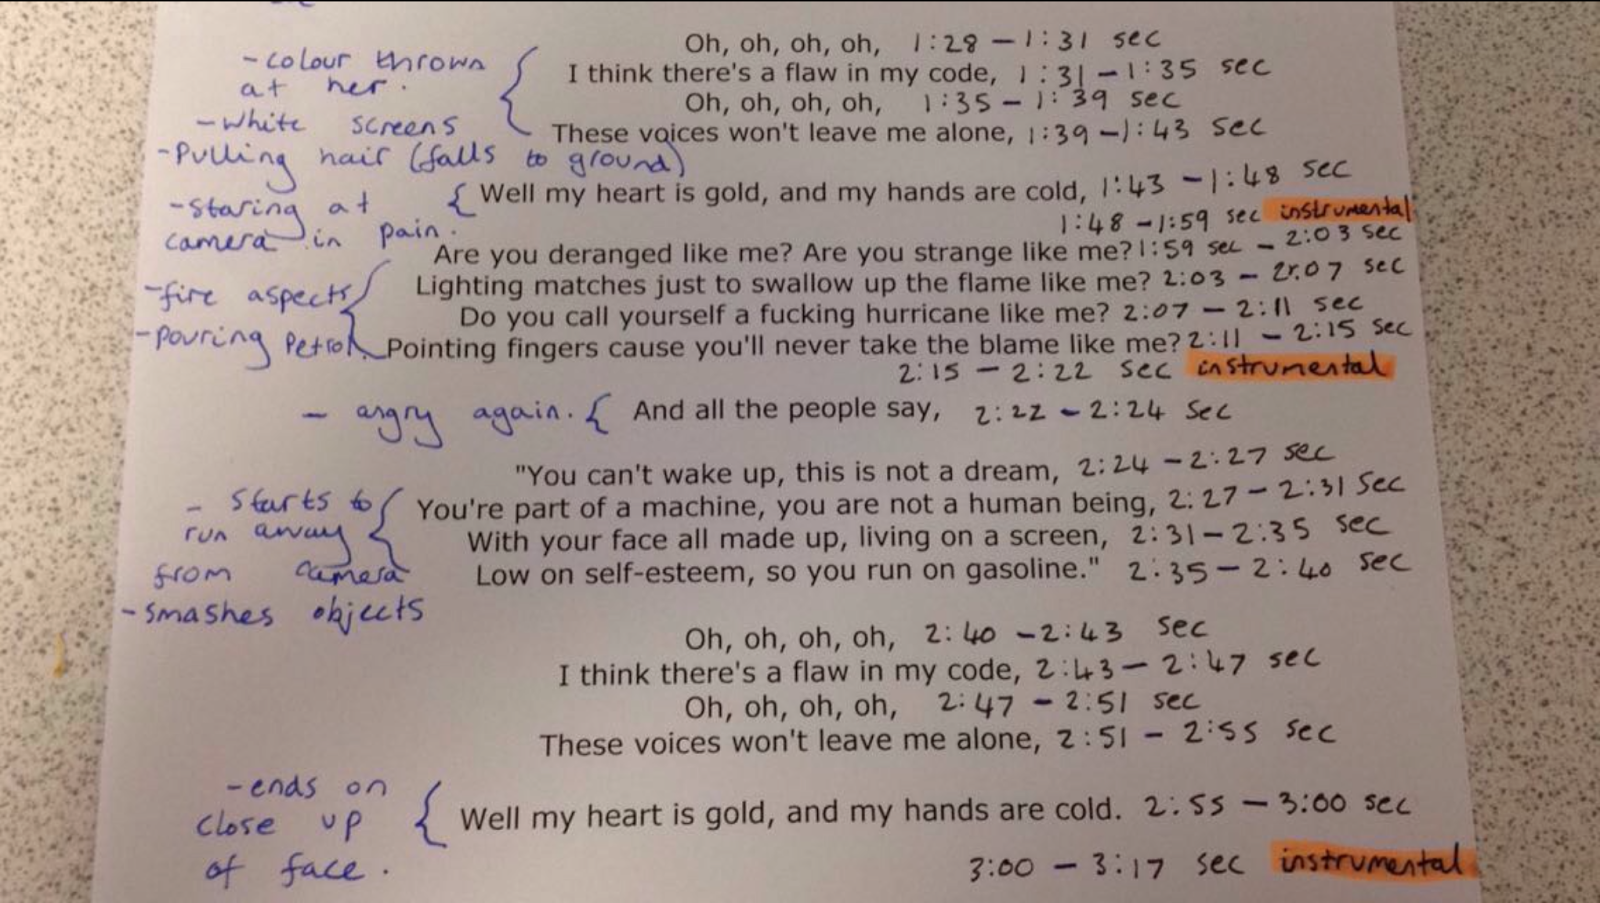 Oh, oh, oh, oh, 1:28 – 1:31 sec
- colour thrown
I think there's a flaw in my code, 1:31 – 1:35 sec
at her.
Oh, oh, oh, oh, 1:35 – 1:39 sec
- white screens
These voices won't leave me alone, 1:39 – 1:43 sec
- Pulling hair (falls to ground)
Well my heart is gold, and my hands are cold, 1:43 – 1:48 sec
- staring at
1:48 – 1:59 sec instrumental
camera in pain.
Are you deranged like me? Are you strange like me? 1:59 sec – 2:03 sec
- fire aspects
Lighting matches just to swallow up the flame like me? 2:03 – 2:07 sec
Do you call yourself a fucking hurricane like me? 2:07 – 2:11 sec
- pouring Petrol
Pointing fingers cause you'll never take the blame like me? 2:11 – 2:15 sec
2:15 – 2:22 sec instrumental
- angry again. And all the people say, 2:22 – 2:24 sec
"You can't wake up, this is not a dream, 2:24 – 2:27 sec
- Starts to
You're part of a machine, you are not a human being, 2:27 – 2:31 sec
run away
With your face all made up, living on a screen, 2:31 – 2:35 sec
from camera
Low on self-esteem, so you run on gasoline." 2:35 – 2:40 sec
- smashes objects
Oh, oh, oh, oh, 2:40 – 2:43 sec
I think there's a flaw in my code, 2:43 – 2:47 sec
Oh, oh, oh, oh, 2:47 – 2:51 sec
These voices won't leave me alone, 2:51 – 2:55 sec
- ends on
close up
Well my heart is gold, and my hands are cold. 2:55 – 3:00 sec
of face.
3:00 – 3:17 sec instrumental